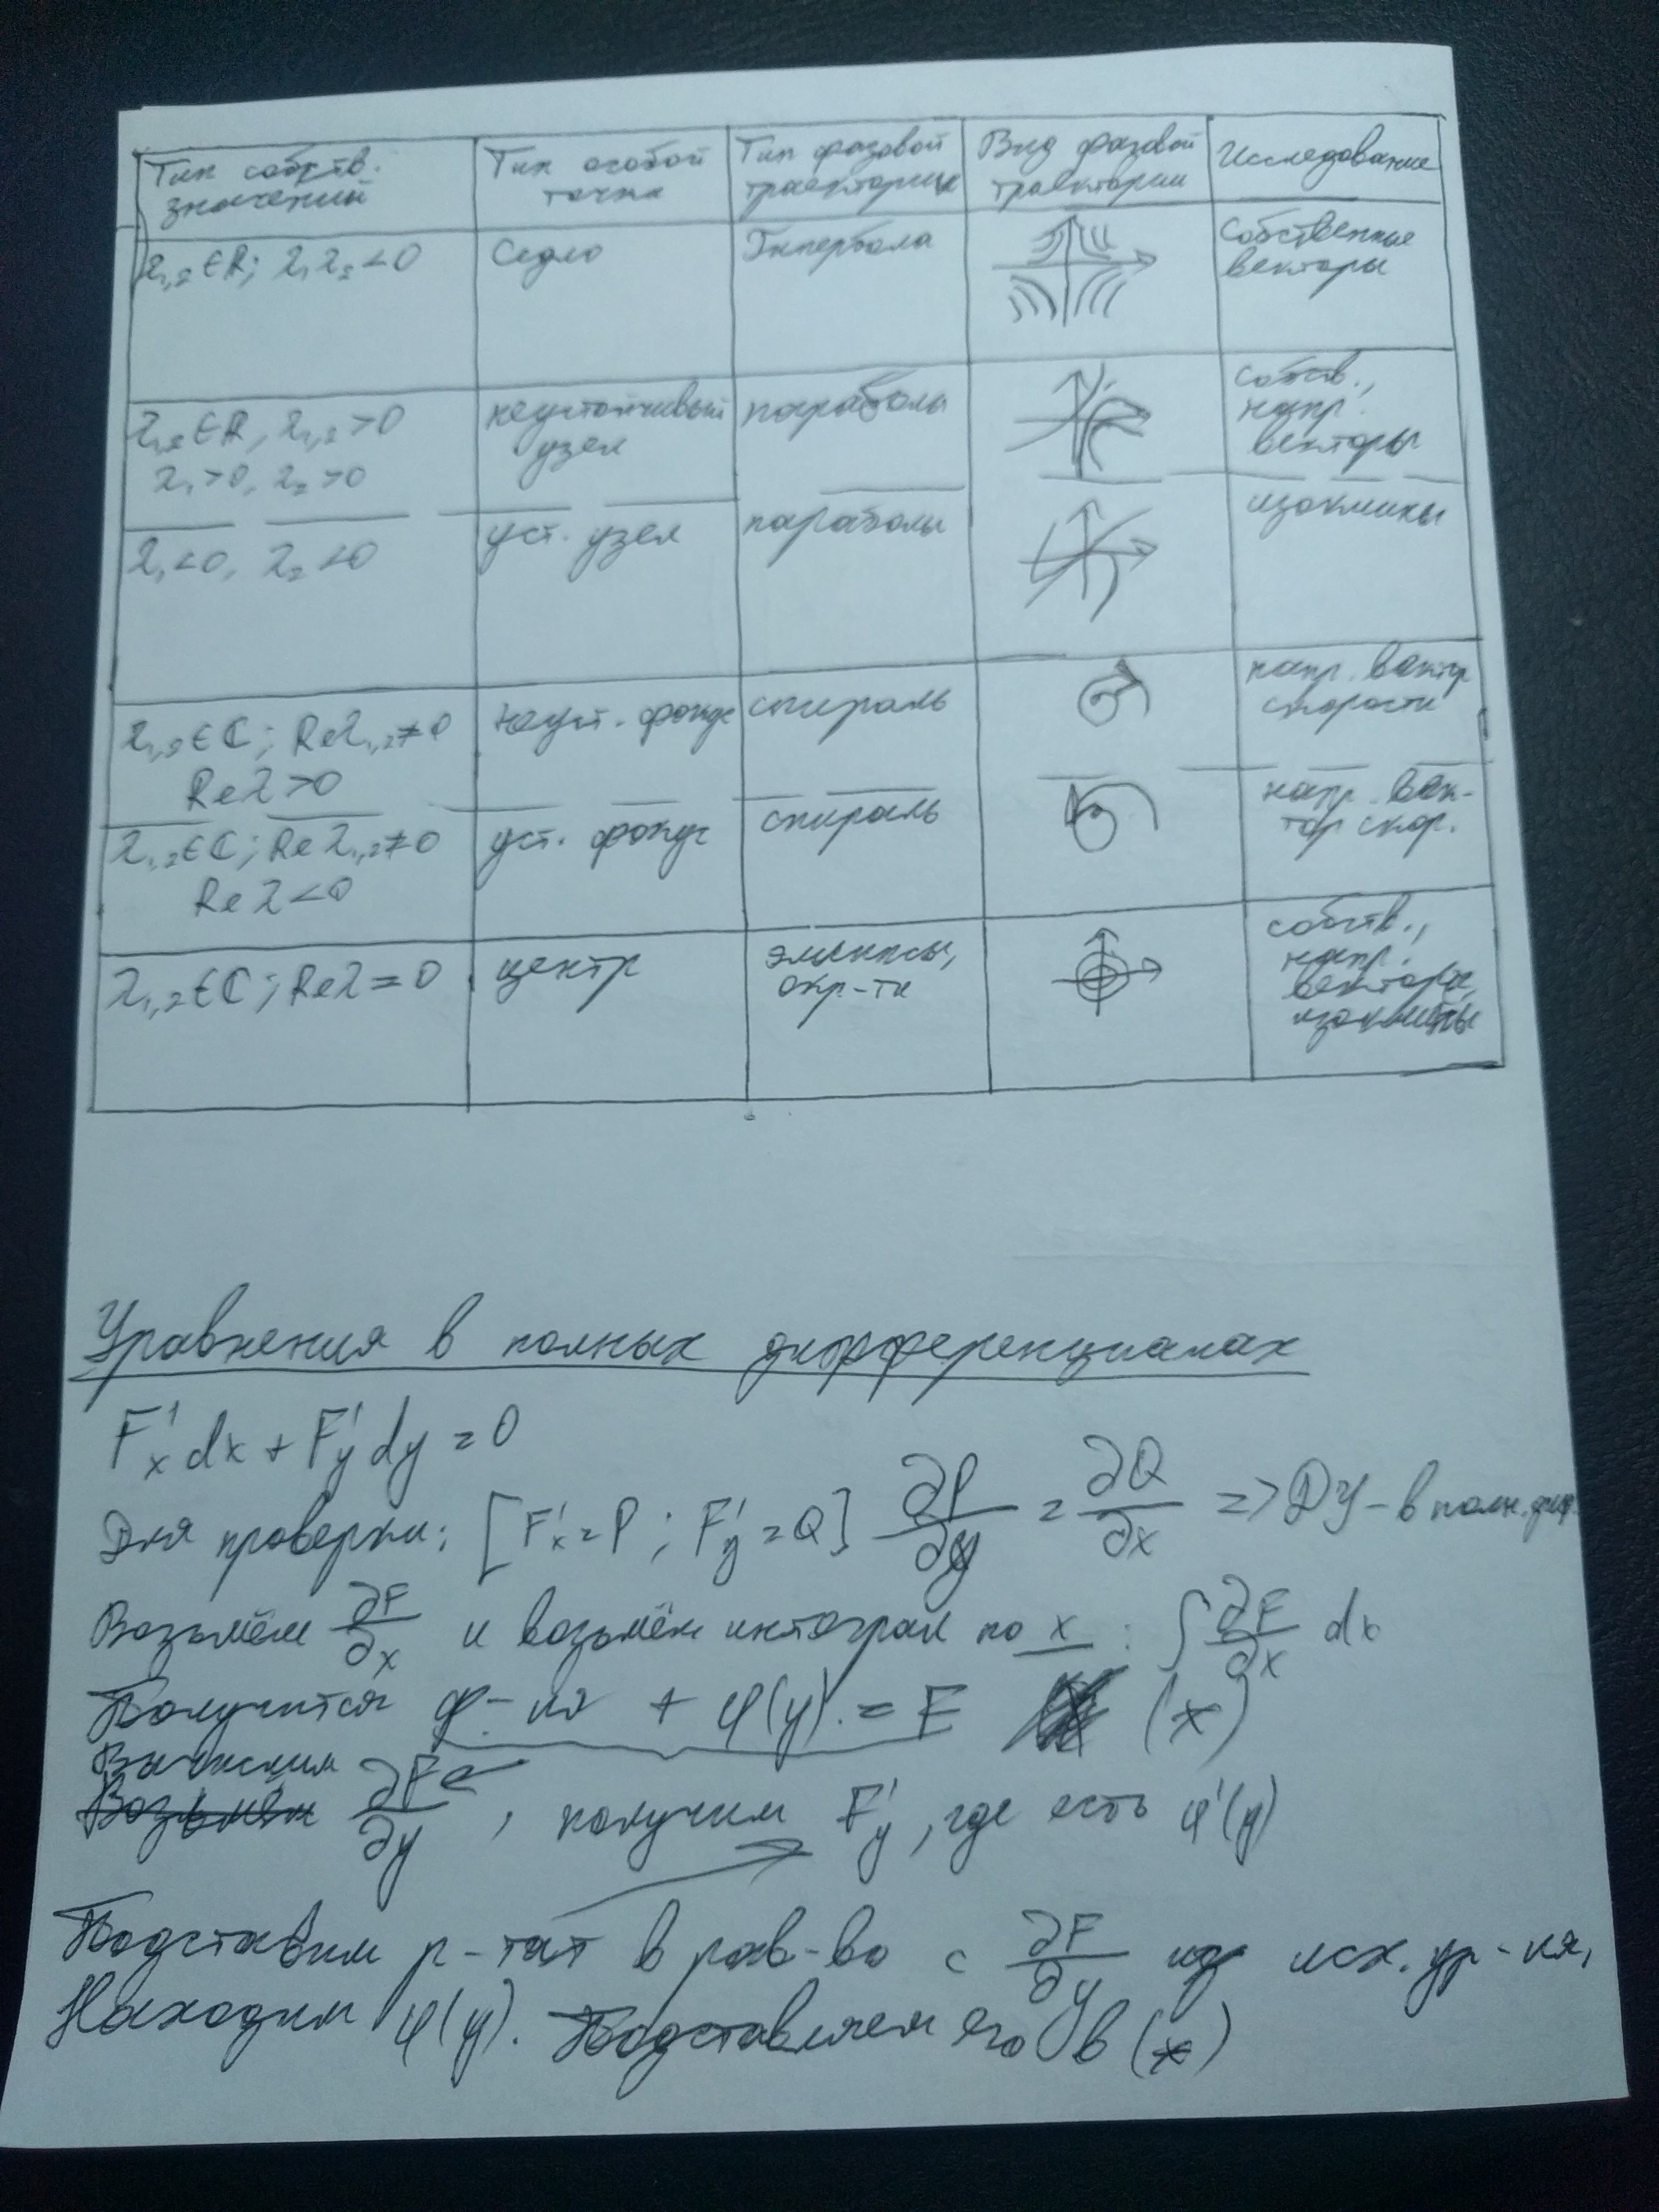 Тип собств. значений
Тип особой точки
Тип фазовой траектории
Вид фазовой траектории
Исследование
λ₁,₂ ∈ R; λ₁λ₂ < 0
Седло
Гипербола
Собственные векторы
λ₁,₂ ∈ R, λ₁,₂ > 0
λ₁ > 0, λ₂ > 0
неустойчивый узел
параболы
собств., напр. векторы
λ₁ < 0, λ₂ < 0
уст. узел
параболы
изоклины
λ₁,₂ ∈ C; Re λ₁,₂ ≠ 0
Re λ > 0
неуст. фокус
спираль
напр. вектр скорости
λ₁,₂ ∈ C; Re λ₁,₂ ≠ 0
Re λ < 0
уст. фокус
спираль
напр. век-
тор скор.
λ₁,₂ ∈ C; Re λ = 0
центр
эллипсы, окр-ти
собств., напр. вектора, изоклины
Уравнения в полных дифференциалах
F'ₓ dx + F'ᵧ dy = 0
Для проверки: [F'ₓ = P ; F'ᵧ = Q] ∂P/∂y = ∂Q/∂x => ДУ - в полн. диф.
Возьмём ∂F/∂x и возьмём интеграл по x : ∫ ∂F/∂x dx
Получится ф-ия + φ(y) = F (*)
Вычислим ∂F/∂y, получим F'ᵧ, где есть φ'(y)
Подставим р-тат в рав-во с ∂F/∂y из исх. ур-ия,
Находим φ(y). Подставляем его в (*)